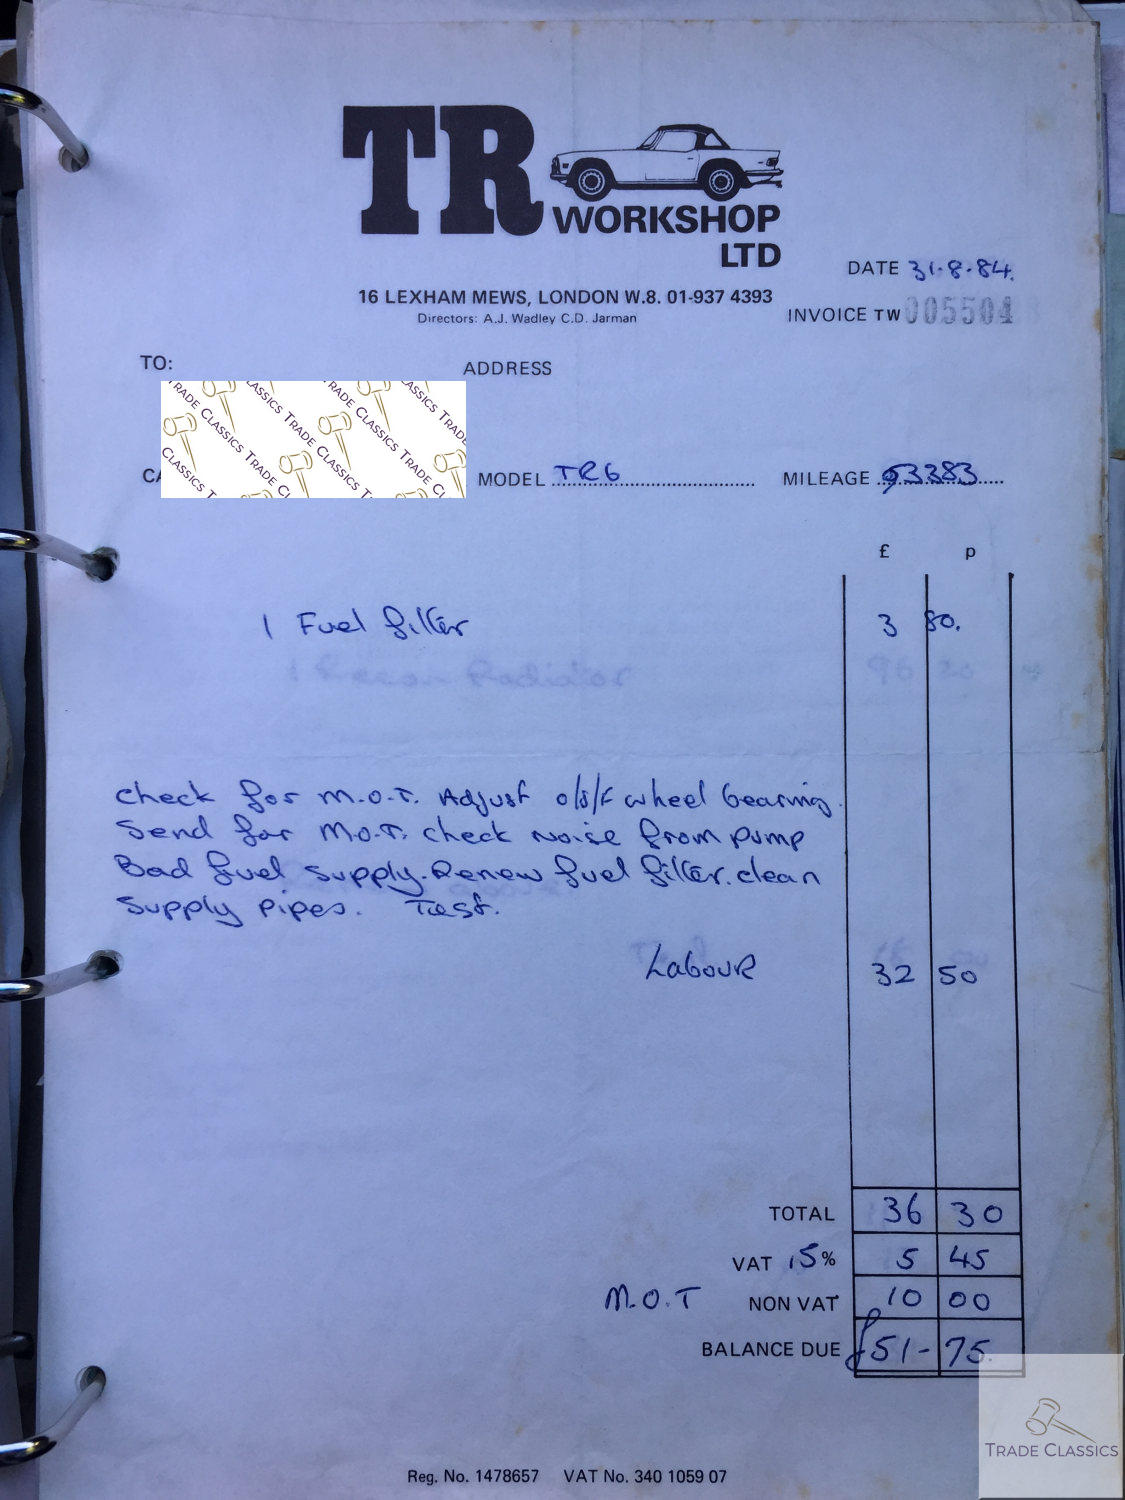 TR WORKSHOP
LTD
16 LEXHAM MEWS, LONDON W.8. 01-937 4393
Directors: A.J. Wadley C.D. Jarman
DATE 31.8.84.
INVOICE TW 005504
TO:
ADDRESS
TRADE CLASSICS TRADE CLASSICS TRADE
CA
MODEL TR6
MILEAGE 93383
£ p
1 Fuel filter 3 80.
1 Recon Radiator 96 20
Check for M.O.T. Adjust o/s/f wheel bearing.
Send for M.O.T. check noise from pump
Bad fuel supply. Renew fuel filter. clean
supply pipes. Test.
Labour 32 50
TOTAL 36 30
VAT 15% 5 45
M.O.T NON VAT 10 00
BALANCE DUE £51-75.
TRADE CLASSICS
Reg. No. 1478657 VAT No. 340 1059 07